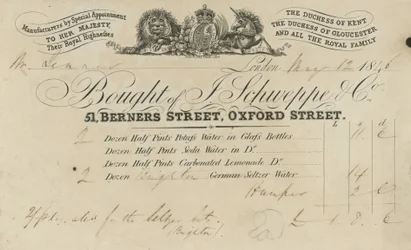 Manufacturers by Special Appointment
TO HER MAJESTY,
Their Royal Highnesses
THE DUCHESS OF KENT
THE DUCHESS OF GLOUCESTER
AND ALL THE ROYAL FAMILY
London May 12 18
Bought of J. Schweppe & Co.
51, BERNERS STREET, OXFORD STREET.
£ s d
2 Dozen Half Pints Potass Water in Glass Bottles
Dozen Half Pints Soda Water in Do.
Dozen Half Pints Carbonated Lemonade Do.
2 Dozen Brighton German Seltzer Water 14
Hamper 2
for the
(Brighton) £ 1 8